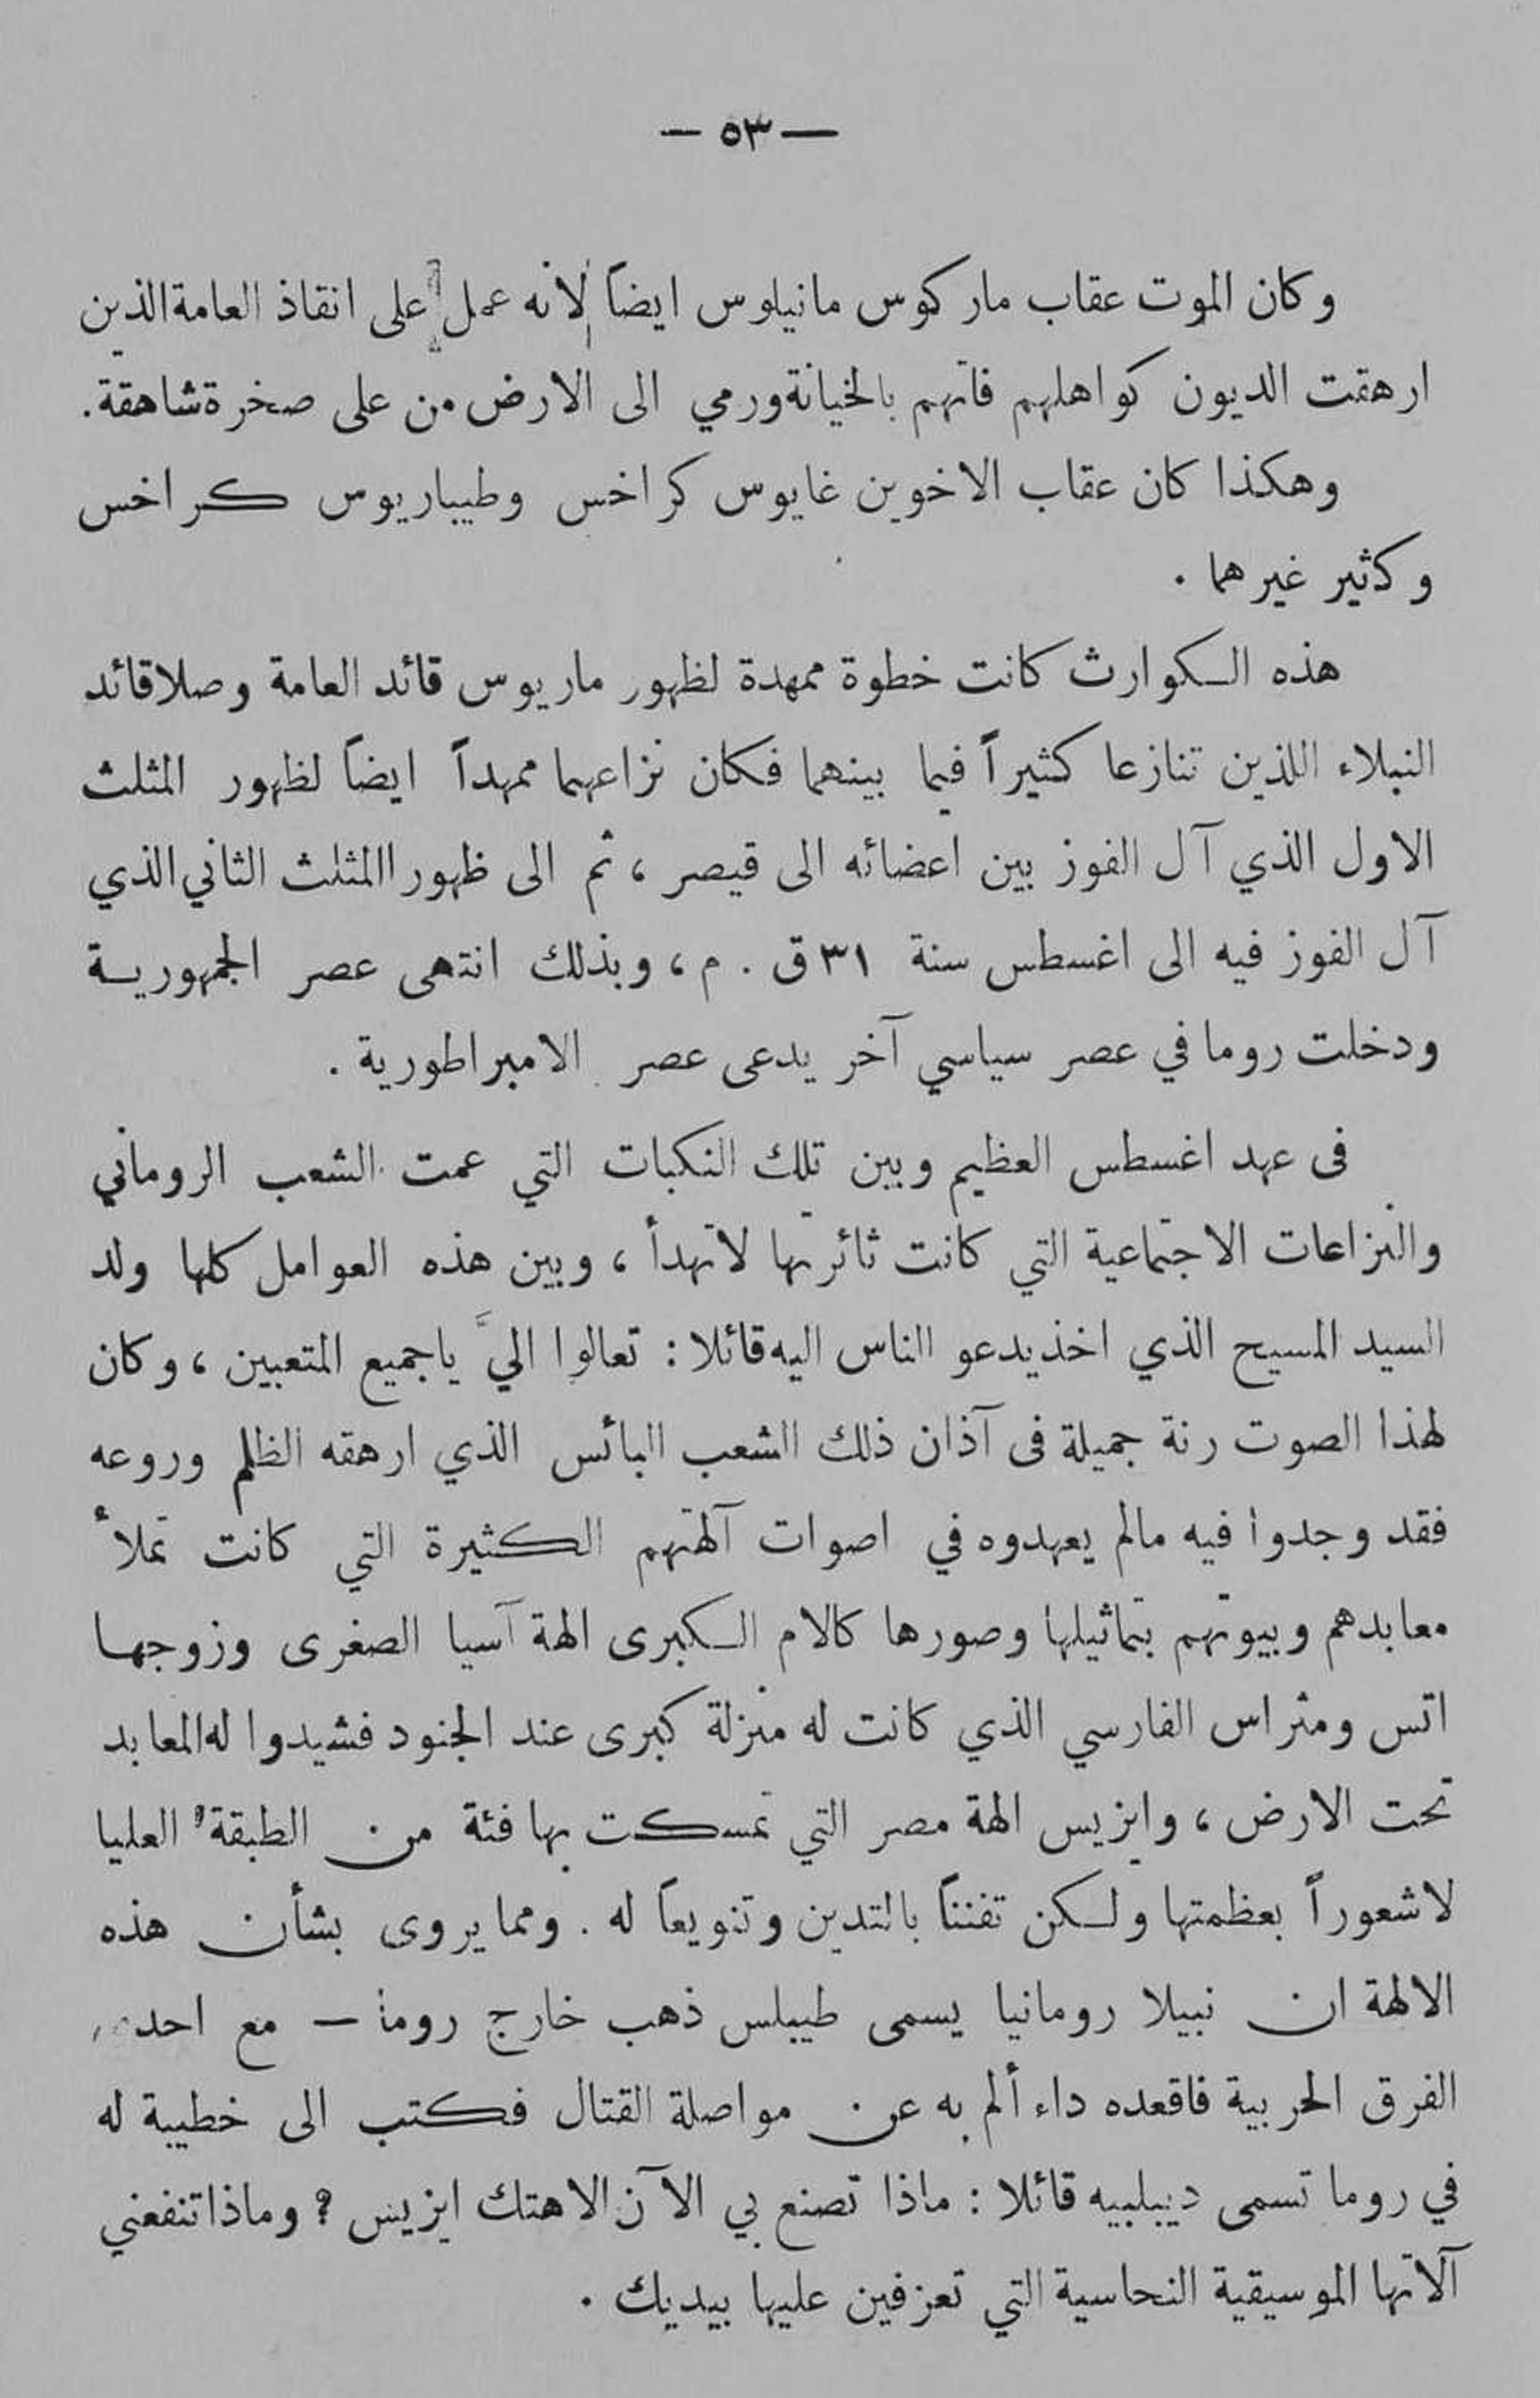 — ٥٣ —
وكان الموت عقاب ماركوس مانيلوس ايضاً لانه عمل على انقاذ العامة الذين
ارهقت الديون كواهلهم فاتهم بالخيانة ورمي الى الارض من على صخرة شاهقة.
وهكذا كان عقاب الاخوين غايوس كراخس وطيباريوس كراخس
وكثير غيرهما .
هذه الكوارث كانت خطوة ممهدة لظهور ماريوس قائد العامة وصلا قائد
النبلاء اللذين تنازعا كثيراً فيما بينهما فكان نزاعهما ممهداً ايضاً لظهور المثلث
الاول الذي آل الفوز بين اعضائه الى قيصر ، ثم الى ظهور االمثلث الثاني الذي
آل الفوز فيه الى اغسطس سنة ٣١ ق . م ، وبذلك انتهى عصر الجمهورية
ودخلت روما في عصر سياسي آخر يدعى عصر الامبراطورية .
فى عهد اغسطس العظيم وبين تلك النكبات التي عمت الشعب الروماني
والنزاعات الاجتماعية التي كانت ثائرتها لاتهدأ ، وبين هذه العوامل كلها ولد
السيد المسيح الذي اخذ يدعو الناس اليه قائلا : تعالوا اليَّ ياجميع المتعبين ، وكان
لهذا الصوت رنة جميلة فى آذان ذلك الشعب البائس الذي ارهقه الظلم وروعه
فقد وجدوا فيه مالم يعهدوه في اصوات آلهتهم الكثيرة التي كانت تملأ
معابدهم وبيوتهم بتماثيلها وصورها كالام الكبرى الهة آسيا الصغرى وزوجها
اتس ومثراس الفارسي الذي كانت له منزلة كبرى عند الجنود فشيدوا له المعابد
تحت الارض ، وايزيس الهة مصر التي تمسكت بها فئة من الطبقة العليا
لاشعوراً بعظمتها ولكن تفنناً بالتدين وتنويعاً له . ومما يروى بشأن هذه
الالهة ان نبيلا رومانيا يسمى طيبلس ذهب خارج روما — مع احد
الفرق الحربية فاقعده داء ألم به عن مواصلة القتال فكتب الى خطيبة له
في روما تسمى ديبلبيه قائلا : ماذا تصنع بي الآن الاهتك ايزيس ؟ وماذا تنفعني
آلاتها الموسيقية النحاسية التي تعزفين عليها بيديك .